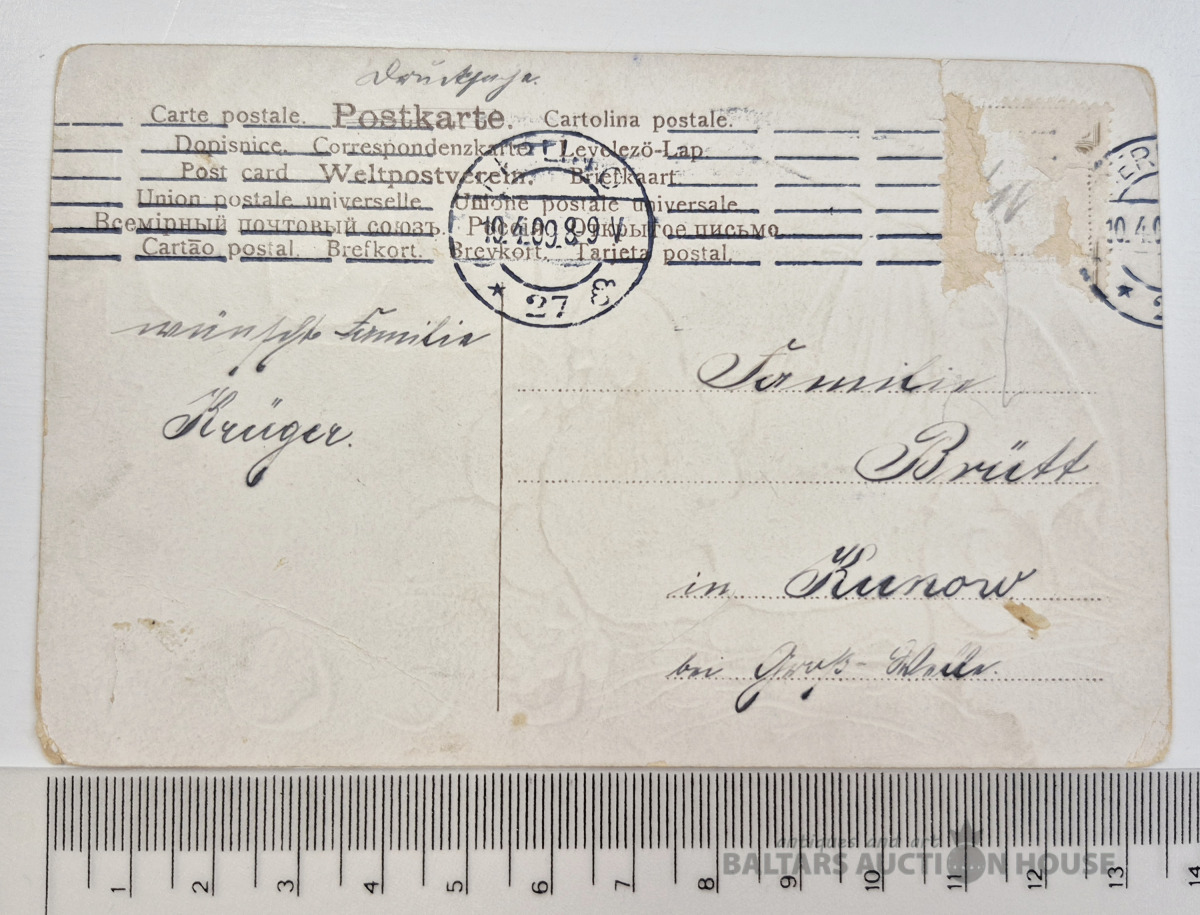 Drucksache.
Carte postale. Postkarte. Cartolina postale.
Dopisnice. Correspondenzkarte. Levelező-Lap.
Post card Weltpostverein. Briefkaart.
Union postale universelle. Unione postale universale.
Всемірный почтовый союзъ. Россія. Открытое письмо.
Cartāo postal. Brefkort. Brevkort. Tarjeta postal.
10.4.09.8-9 V
* 27
10.4.0
*
wünscht Familie
Krüger.
Familie
Brütt
in Kunow
bei Groß-
1 2 3 4 5 6 7 8 9 10 11 12 13 14
antiques and art
BALTARS AUCTION HOUSE